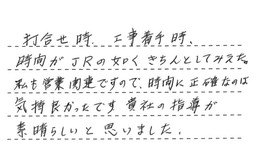 打合せ時、工事着手時、
時間がJRの如くきちんとしてみえた。
私も営業関連ですので、時間に正確なのは
気持良かったです 貴社の指導が
素晴らしいと思いました。